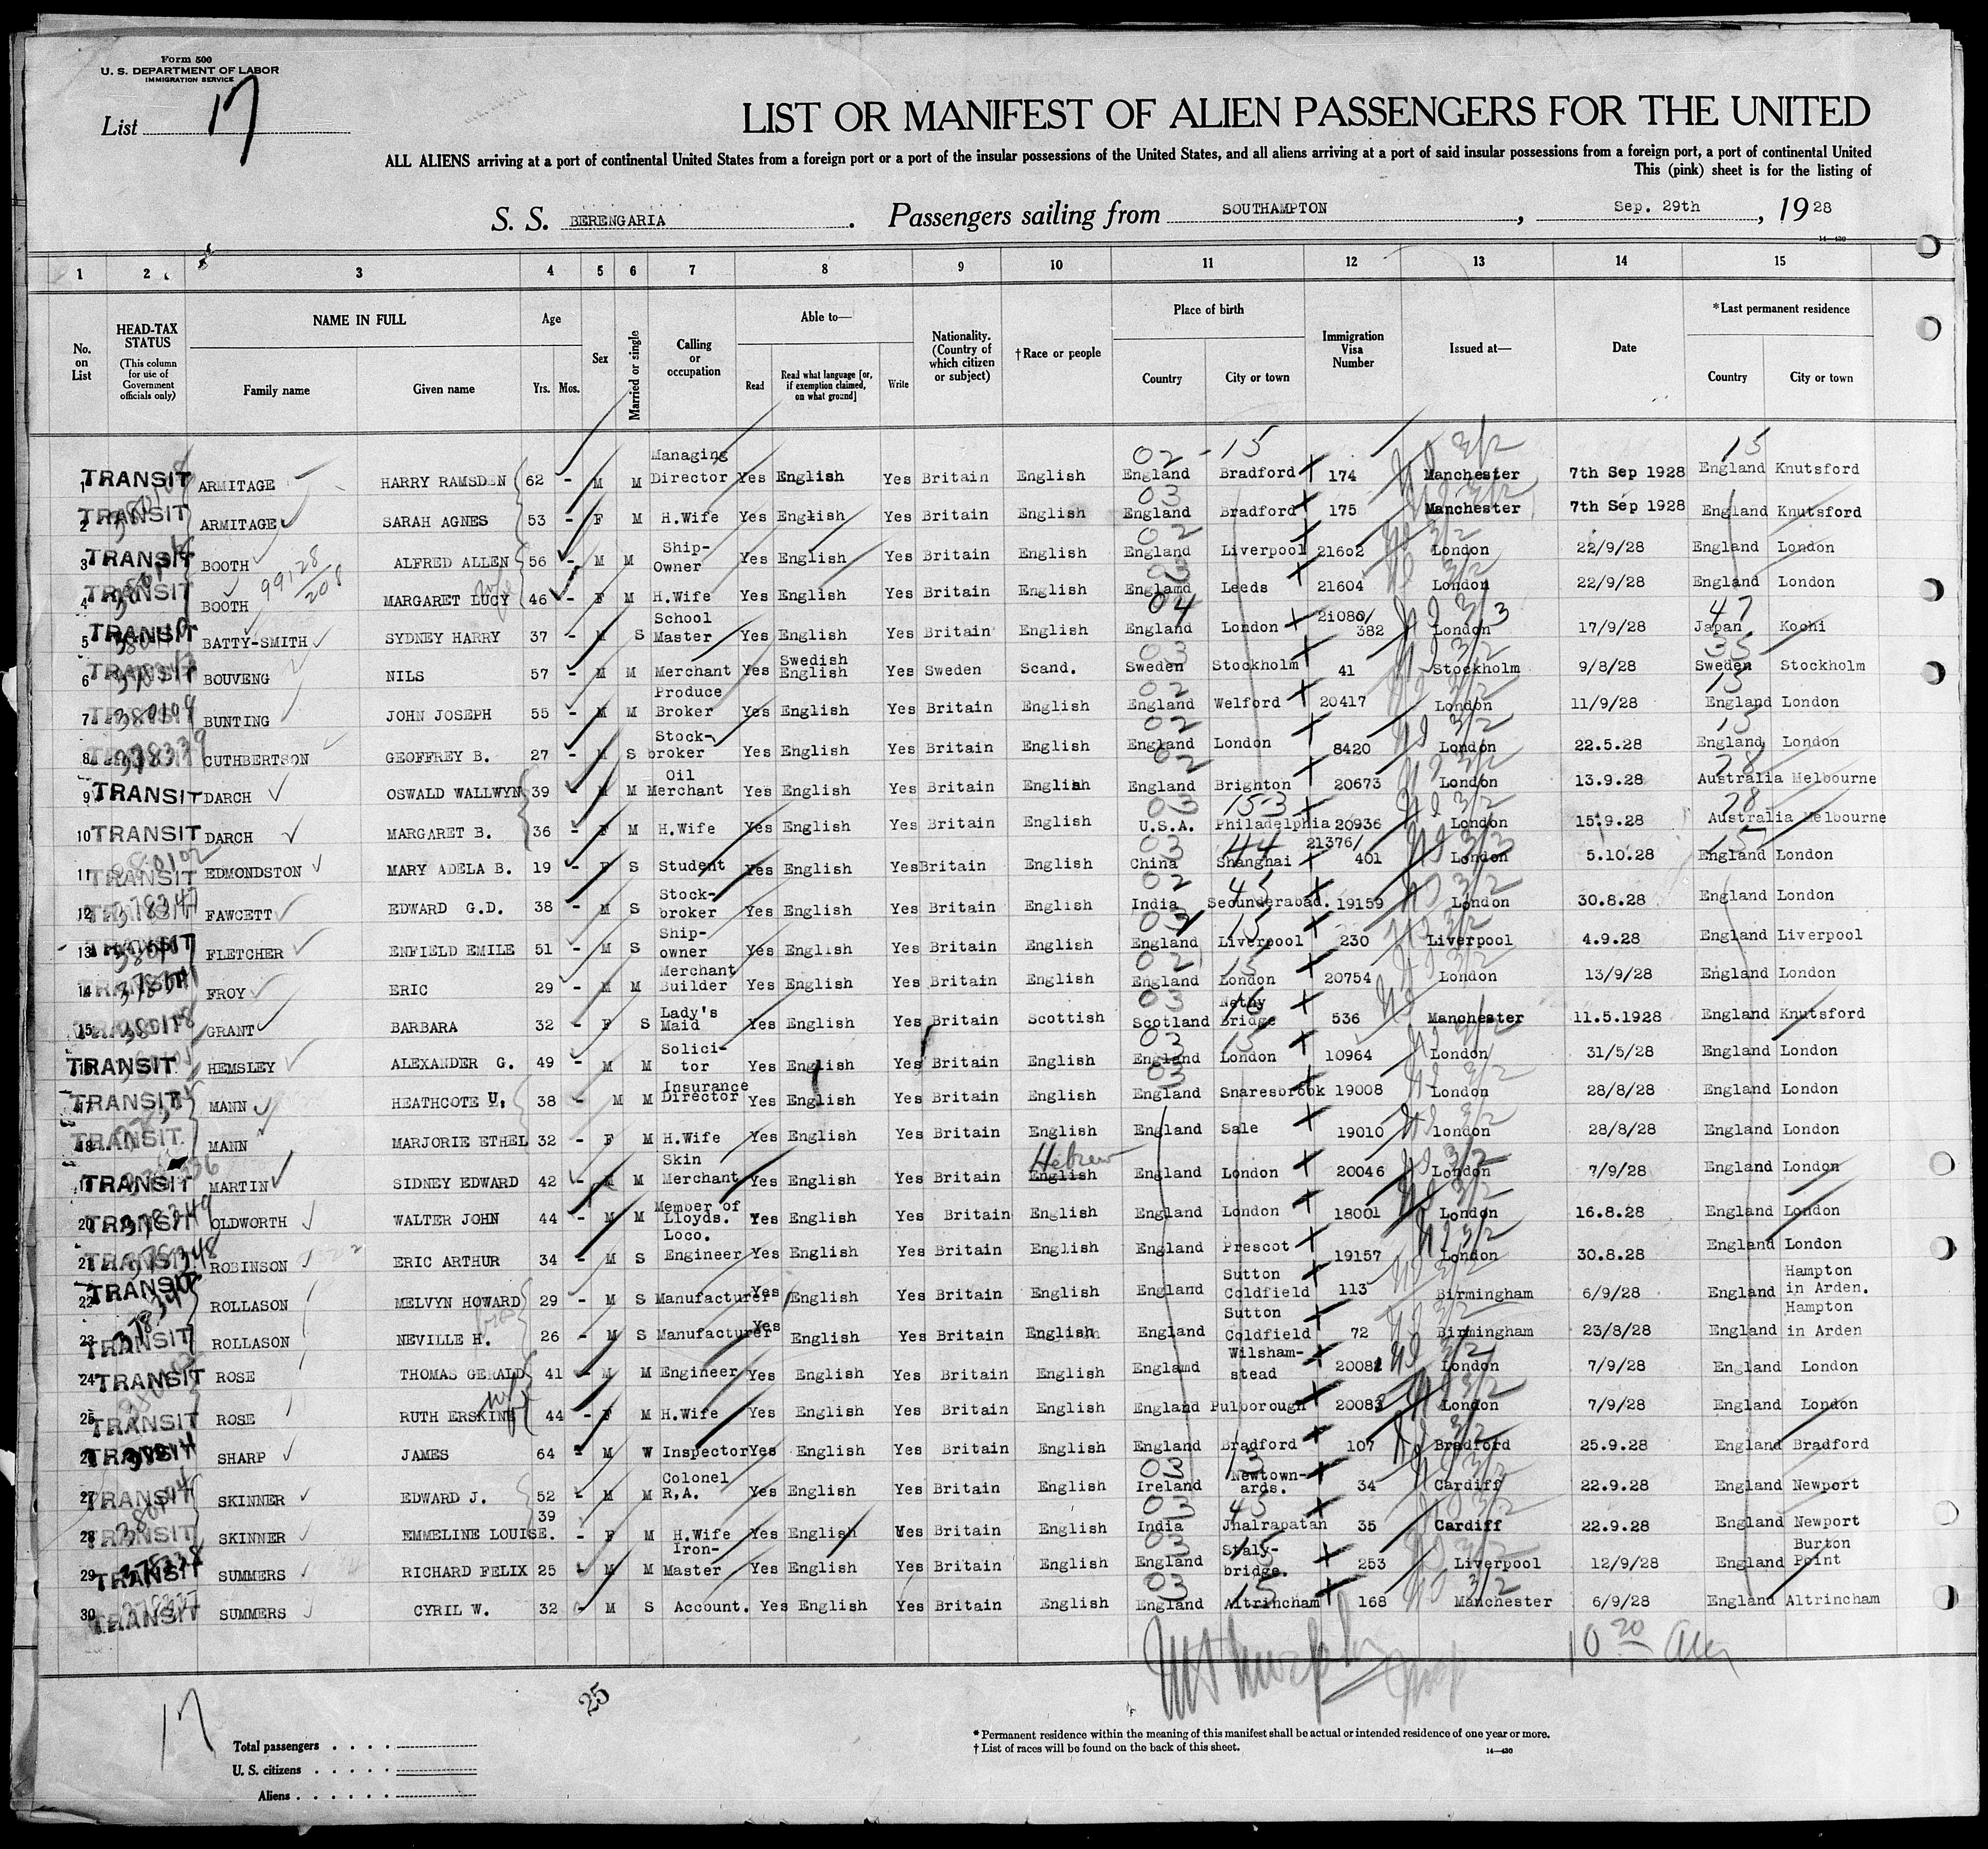 Form 500
U. S. DEPARTMENT OF LABOR
IMMIGRATION SERVICE
List 17
LIST OR MANIFEST OF ALIEN PASSENGERS FOR THE UNITED
ALL ALIENS arriving at a port of continental United States from a foreign port or a port of the insular possessions of the United States, and all aliens arriving at a port of said insular possessions from a foreign port, a port of continental United
This (pink) sheet is for the listing of
S. S. BERENGARIA. Passengers sailing from SOUTHAMPTON, Sep. 29th, 1928
14—430
1 2 3 4 5 6 7 8 9 10 11 12 13 14 15
No. on List
HEAD-TAX STATUS (This column for use of Government officials only)
NAME IN FULL
Family name Given name
Age
Yrs. Mos.
Sex
Married or single
Calling or occupation
Able to—
Read Read what language [or, if exemption claimed, on what ground] Write
Nationality. (Country of which citizen or subject)
†Race or people
Place of birth
Country City or town
Immigration Visa Number
Issued at—
Date
*Last permanent residence
Country City or town
02 - 15 15
1 TRANSIT ARMITAGE HARRY RAMSDEN 62 - M M Managing Director Yes English Yes Britain English England Bradford 174 Manchester 7th Sep 1928 England Knutsford
03
2 TRANSIT ARMITAGE SARAH AGNES 53 - F M H.Wife Yes English Yes Britain English England Bradford 175 Manchester 7th Sep 1928 England Knutsford
02
3 TRANSIT BOOTH ALFRED ALLEN 56 - M M Ship-Owner Yes English Yes Britain English England Liverpool 21602 London 22/9/28 England London
99128/208 wife 03
4 TRANSIT BOOTH MARGARET LUCY 46 - F M H.Wife Yes English Yes Britain English England Leeds 21604 London 22/9/28 England London
04 47
5 TRANSIT BATTY-SMITH SYDNEY HARRY 37 - M S School Master Yes English Yes Britain English England London 21086/382 London 17/9/28 Japan Kochi
03 35
6 TRANSIT BOUVENG NILS 57 - M M Merchant Yes Swedish English Yes Sweden Scand. Sweden Stockholm 41 Stockholm 9/8/28 Sweden Stockholm
02 15
7 380109 BUNTING JOHN JOSEPH 55 - M M Produce Broker Yes English Yes Britain English England Welford 20417 London 11/9/28 England London
02 15
8 378339 CUTHBERTSON GEOFFREY B. 27 - M S Stock-broker Yes English Yes Britain English England London 8420 London 22.5.28 England London
02 78
9 TRANSIT DARCH OSWALD WALLWYN 39 - M M Oil Merchant Yes English Yes Britain English England Brighton 20673 London 13.9.28 Australia Melbourne
03 153 78
10 TRANSIT DARCH MARGARET B. 36 - F M H.Wife Yes English Yes Britain English U.S.A. Philadelphia 20936 London 15.9.28 Australia Melbourne
03 44 15
11 TRANSIT EDMONDSTON MARY ADELA B. 19 - F S Student Yes English Yes Britain English China Shanghai 21376/401 London 5.10.28 England London
02 45
12 378347 FAWCETT EDWARD G.D. 38 - M S Stock-broker Yes English Yes Britain English India Secunderabad. 19159 London 30.8.28 England London
03 15
13 TRANSIT FLETCHER ENFIELD EMILE 51 - M S Ship-owner Yes English Yes Britain English England Liverpool 230 Liverpool 4.9.28 England Liverpool
02 15
14 TRANSIT FROY ERIC 29 - M M Merchant Builder Yes English Yes Britain English England London 20754 London 13/9/28 England London
03 16
15 GRANT BARBARA 32 - F S Lady's Maid Yes English Yes Britain Scottish Scotland Nethy Bridge 536 Manchester 11.5.1928 England Knutsford
03 15
16 TRANSIT HEMSLEY ALEXANDER G. 49 - M M Solici-tor Yes English Yes Britain English England London 10964 London 31/5/28 England London
03
17 TRANSIT MANN HEATHCOTE U, 38 - M M Insurance Director Yes English Yes Britain English England Snaresbrook 19008 London 28/8/28 England London
18 TRANSIT MANN MARJORIE ETHEL 32 - F M H.Wife Yes English Yes Britain English England Sale 19010 london 28/8/28 England London
Hebrew
19 TRANSIT MARTIN SIDNEY EDWARD 42 - M M Skin Merchant Yes English Yes Britain English England London 20046 London 7/9/28 England London
20 TRANSIT OLDWORTH WALTER JOHN 44 - M M Member of Lloyds. Yes English Yes Britain English England London 18001 London 16.8.28 England London
21 TRANSIT ROBINSON ERIC ARTHUR 34 - M S Loco. Engineer Yes English Yes Britain English England Prescot 19157 London 30.8.28 England London
22 TRANSIT ROLLASON MELVYN HOWARD 29 - M S Manufacturer Yes English Yes Britain English England Sutton Coldfield 113 Birmingham 6/9/28 England Hampton in Arden.
23 TRANSIT ROLLASON NEVILLE H. 26 - M S Manufacturer Yes English Yes Britain English England Sutton Coldfield 72 Birmingham 23/8/28 England Hampton in Arden
24 TRANSIT ROSE THOMAS GERALD 41 - M M Engineer Yes English Yes Britain English England Wilsham-stead 20082 London 7/9/28 England London
wife
25 TRANSIT ROSE RUTH ERSKINE 44 - F M H.Wife Yes English Yes Britain English England Pulborough 20083 London 7/9/28 England London
26 TRANSIT SHARP JAMES 64 - M W Inspector Yes English Yes Britain English England Bradford 107 Bradford 25.9.28 England Bradford
03 13
27 TRANSIT SKINNER EDWARD J. 52 - M M Colonel R.A. Yes English Yes Britain English Ireland Newtown-ards. 34 Cardiff 22.9.28 England Newport
03 45
28 TRANSIT SKINNER EMMELINE LOUISE. 39 - F M H.Wife Yes English Yes Britain English India Jhalrapatan 35 Cardiff 22.9.28 England Newport
03 15
29 TRANSIT SUMMERS RICHARD FELIX 25 - M M Iron-Master Yes English Yes Britain English England Staly-bridge. 253 Liverpool 12/9/28 England Burton Point
03 15
30 TRANSIT SUMMERS CYRIL W. 32 - M S Account. Yes English Yes Britain English England Altrincham 168 Manchester 6/9/28 England Altrincham
10 20 am
17
25
Total passengers
U. S. citizens
Aliens
* Permanent residence within the meaning of this manifest shall be actual or intended residence of one year or more.
† List of races will be found on the back of this sheet.
14—430